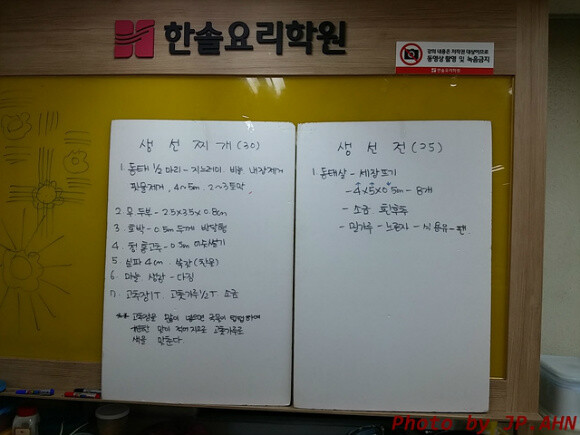 한솔요리학원
강의 내용은 저작권 대상이므로
동영상 촬영 및 녹음금지
한솔요리학원
생선찌개(30)
1. 동태 1/2 마리 - 지느러미. 비늘 내장제거
핏물제거, 4~5cm. 2~3토막,
2. 무. 두부 - 2.5x3.5x0.8cm
3. 호박 - 0.5cm 두께 반달형
4. 청홍고추 - 0.5cm 어슷썰기
5. 실파 4cm. 쑥갓
6. 마늘 생강 - 다짐
7. 고추장 1T. 고춧가루 1/2T 소금
** 고추장을 많이 넣으면 국물이
맑게 고춧가루로
색을 맞춘다
생선전(25)
1. 동태살 - 세장뜨기
- 4x5x0.5cm - 8개
- 소금 흰후추
- 밀가루 - 노른자 - 식용유 - 팬
Photo by JP.AHN